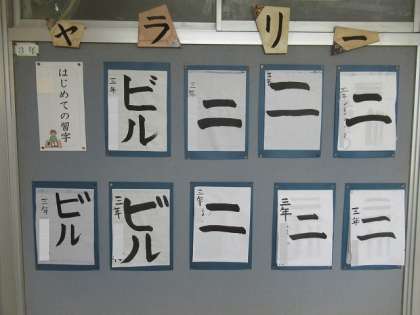 ャラリー
3年
はじめての習字
三年
ビル
三年
二
三年
二
三年
二
三年
ビル
三年
ビル
三年
二
三年
二
三年
二